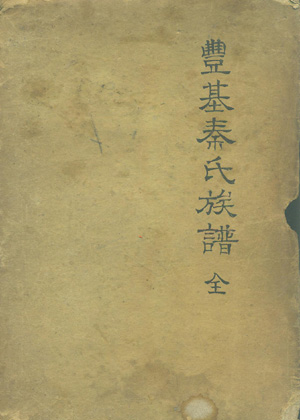 豐基秦氏族譜 全